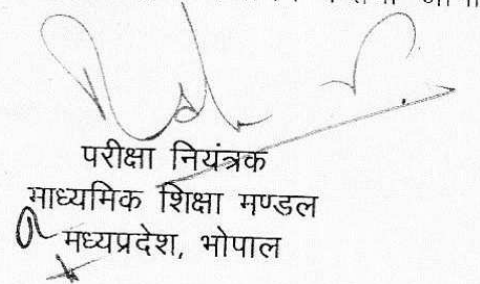 परीक्षा नियंत्रक
माध्यमिक शिक्षा मण्डल
मध्यप्रदेश, भोपाल